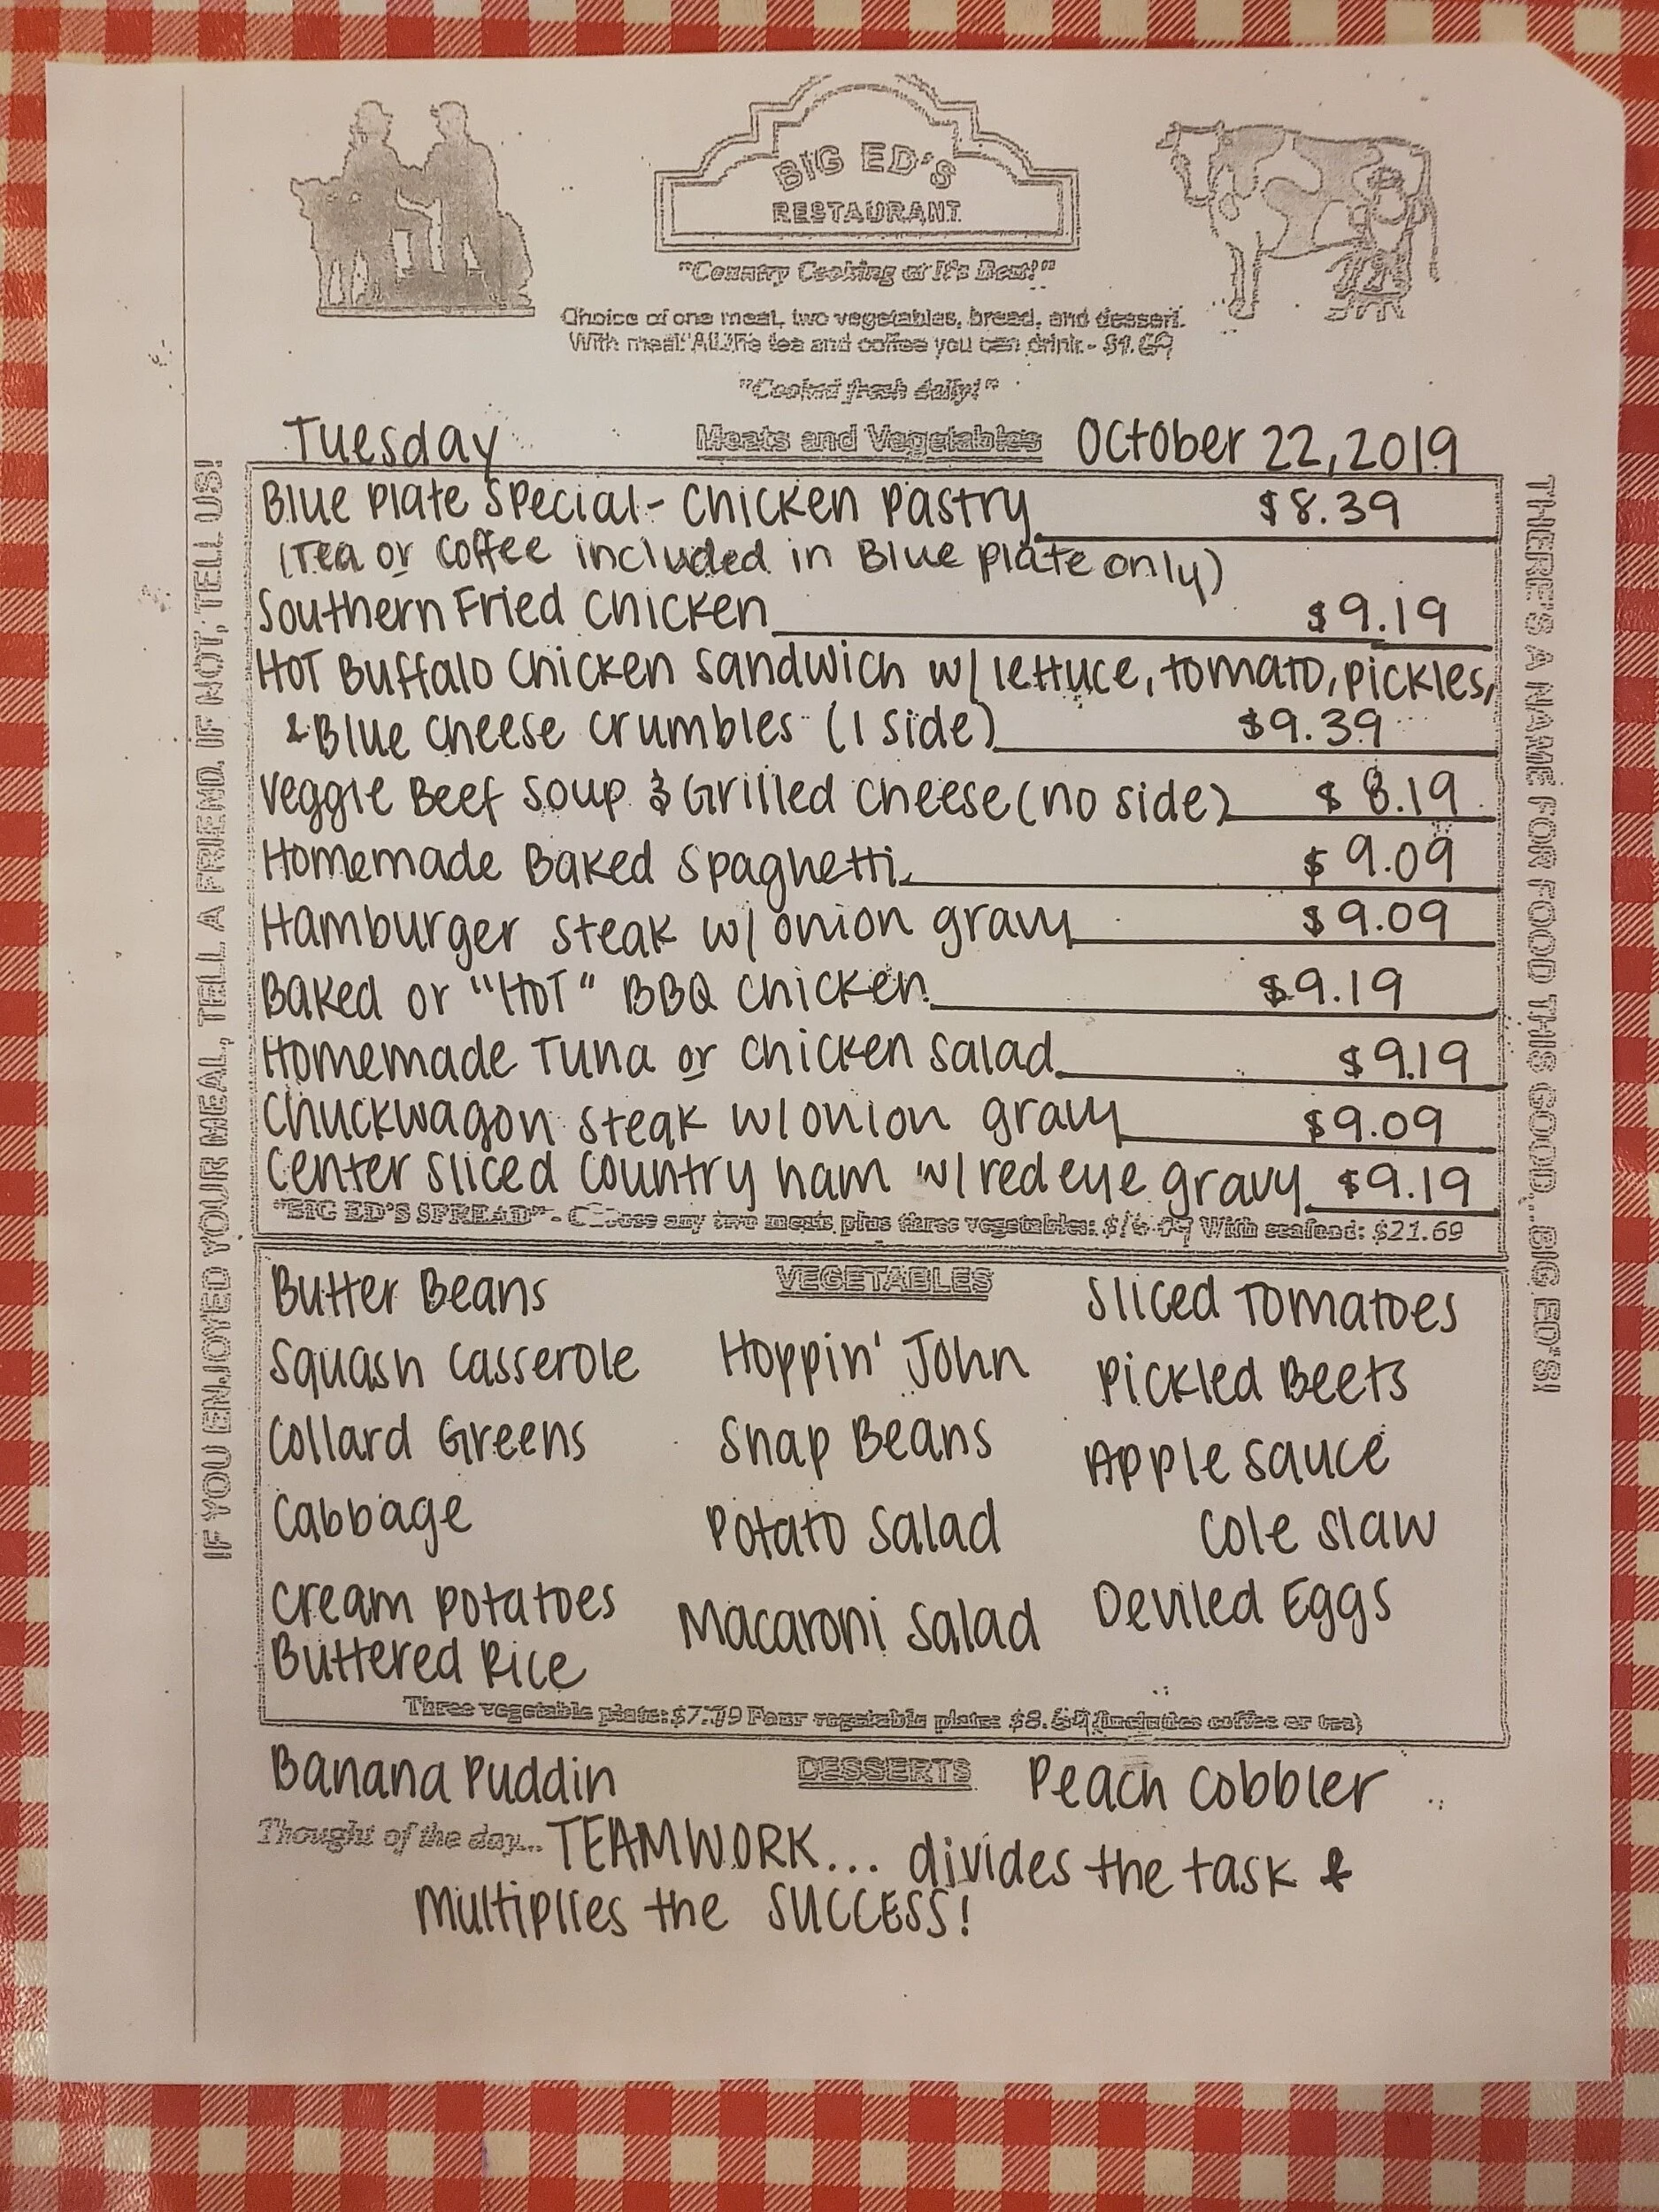 BIG ED'S
RESTAURANT
"Country Cooking at It's Best!"
Choice of one meat, two vegetables, bread, and dessert.
With meal: All the tea and coffee you can drink - $1.69
"Cooked fresh daily!"
Tuesday Meats and Vegetables October 22, 2019
Blue Plate Special - Chicken Pastry $8.39
(Tea or Coffee included in Blue plate only)
Southern Fried Chicken $9.19
Hot Buffalo Chicken Sandwich w/ lettuce, tomato, pickles,
& Blue Cheese crumbles (1 side) $9.39
Veggie Beef Soup & Grilled Cheese (no side) $8.19
Homemade Baked Spaghetti $9.09
Hamburger Steak w/ onion gravy $9.09
Baked or "Hot" BBQ Chicken $9.19
Homemade Tuna or Chicken Salad $9.19
Chuckwagon Steak w/ onion gravy $9.09
Center Sliced Country ham w/ red eye gravy $9.19
"BIG ED'S SPREAD" - Choose any two meats, plus three vegetables: With seafood: $21.69
VEGETABLES
Butter Beans
Squash Casserole
Collard Greens
Cabbage
Cream Potatoes
Buttered Rice
Hoppin' John
Snap Beans
Potato Salad
Macaroni Salad
Sliced Tomatoes
Pickled Beets
Apple Sauce
Cole Slaw
Deviled Eggs
Three vegetable plate: Four vegetable plate: (includes coffee or tea)
Banana Puddin DESSERTS Peach Cobbler
Thought of the day... TEAMWORK... divides the task &
Multiplies the SUCCESS!
IF YOU ENJOYED YOUR MEAL, TELL A FRIEND. IF NOT, TELL US!
THERE'S A NAME FOR FOOD THIS GOOD...BIG ED'S!